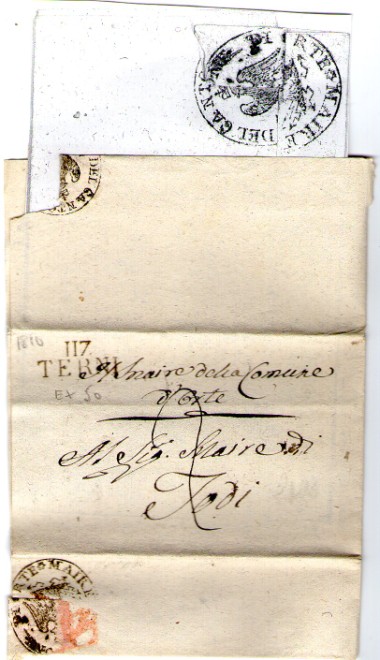 MAIRE DEL CANTONE DI ORTE
DEL CANTO
1810
117
TERNI
Ex 50
Il Maire della Comune
d'Orte
Al Sig. Maire di
Todi
RTE MAIRE